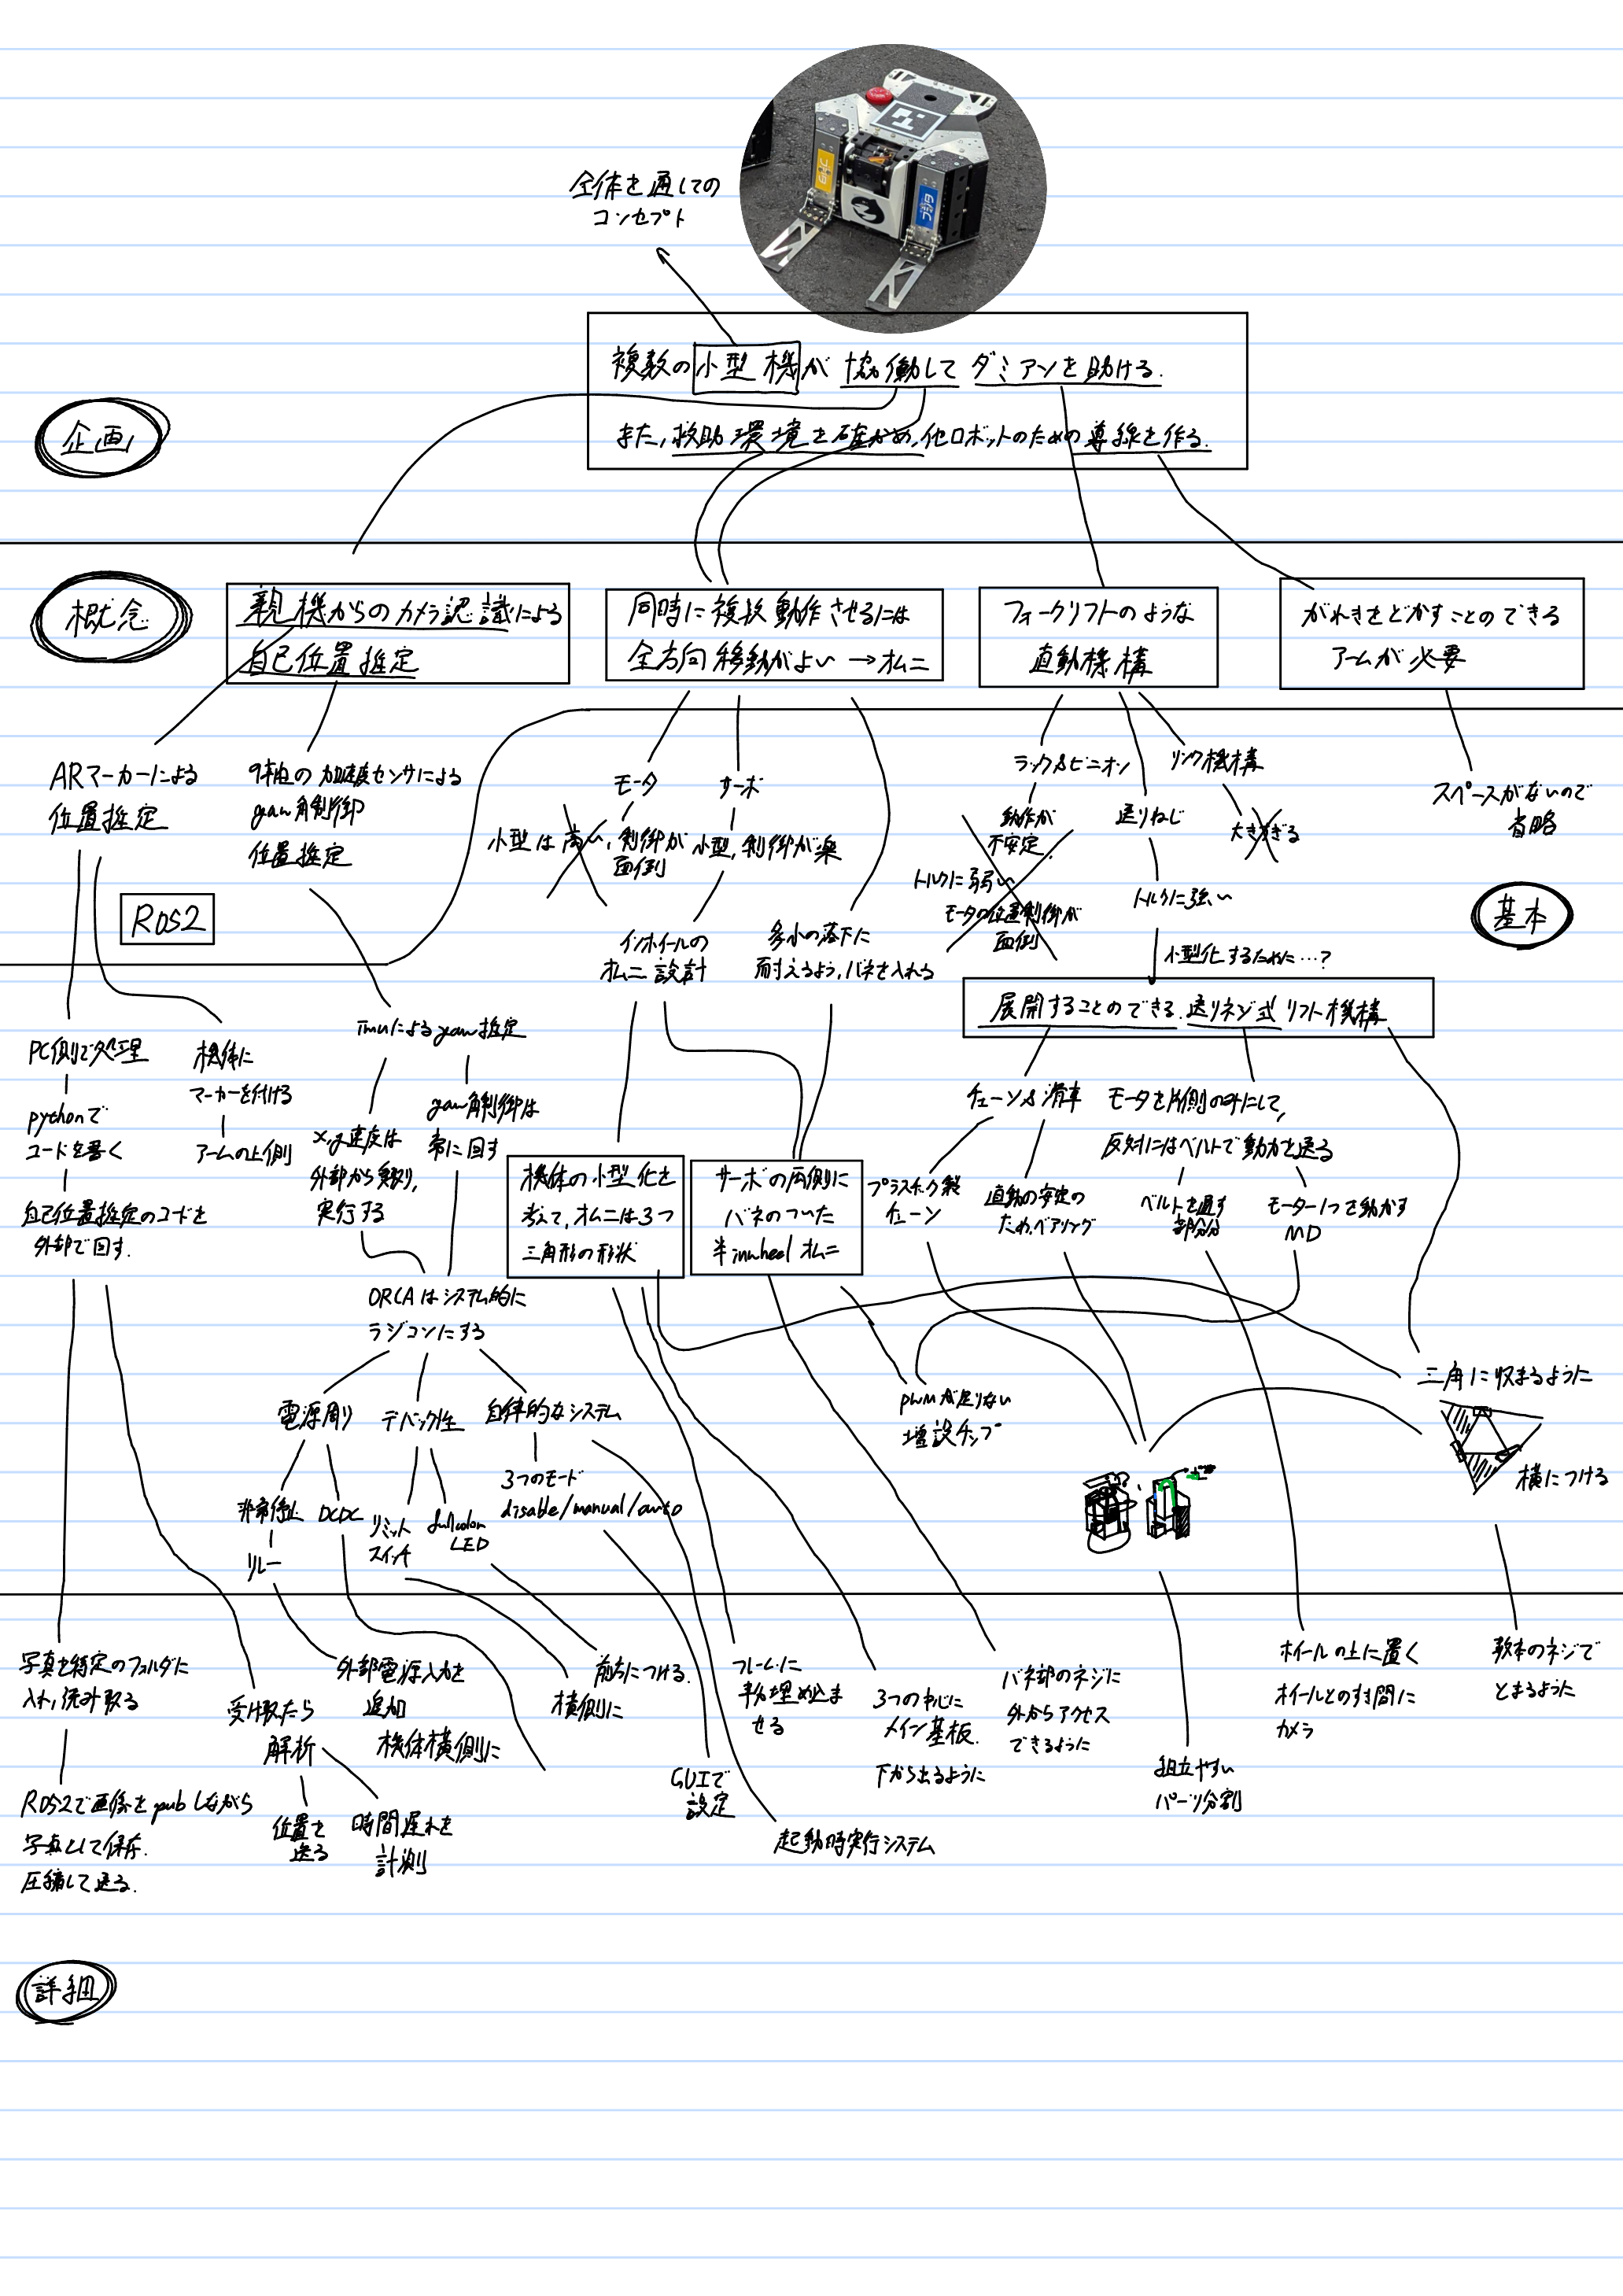 全体を通しての
コンセプト
複数の小型機が協働してダミアンを助ける.
また,救助環境を確かめ,他ロボットのための導線を作る.
企画
概念
親機からのカメラ認識による
自己位置推定
同時に複数動作させるには
全方向移動がよい→オムニ
フォークリフトのような
直動機構
がれきをどかすことのできる
アームが必要
ARマーカーによる
位置推定
9軸の加速度センサによる
yaw角制御
位置推定
モータ
サーボ
小型は高い,制御が
面倒
小型,制御が楽
ラック&ピニオン
動作が
不安定.
トルクに弱い
モータの位置制御が
面倒
送りねじ
トルクに強い
リンク機構
大きすぎる
スペースがないので
省略
ROS2
基本
インホイールの
オムニ設計
多少の落下に
耐えるよう,バネを入れる
小型化するために…?
展開することのできる.送りネジ式リフト機構
PC側で処理
pythonで
コードを書く
自己位置推定のコードを
外部で回す.
機体に
マーカーを付ける
アームの上側
imuによるyaw推定
x,y速度は
外部から受取り,
実行する
yaw角制御は
常に回す
機体の小型化を
考えて,オムニは3つ
三角形の形状
サーボの両側に
バネのついた
半inwheelオムニ
チェーン&滑車
プラスチック製
チェーン
直動の安定の
ため,ベアリング
モータを片側のみにして,
反対にはベルトで動力を送る
ベルトを通す
部分
モーター1つを動かす
MD
ORCAはシステム的に
ラジコンにする
電源周り
デバック性
自律的なシステム
非常停止
リレー
DCDC
リミット
スイッチ
fullcolor
LED
3つのモード
disable/manual/auto
pwmが足りない
増設チップ
三角に収まるように
横につける
写真を特定のフォルダに
入れ,読み取る
ROS2で画像をpubしながら
写真として保存.
圧縮して送る.
受け取たら
解析
位置を
送る
時間遅れを
計測
外部電源入力を
追加
機体横側に
前方につける.
横側に
フレームに
半分埋め込ま
せる
GUIで
設定
起動時実行システム
3つの中心に
メイン基板.
下から出るように
バネ部のネジに
外からアクセス
できるように
組立やすい
パーツ分割
ホイールの上に置く
ホイールとのす間に
カメラ
数本のネジで
とまるように
詳細